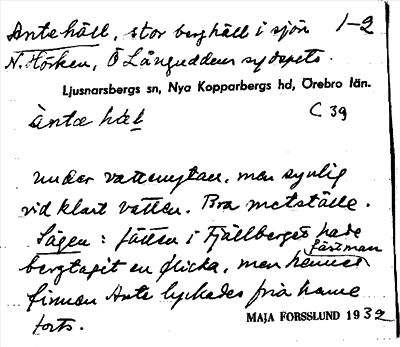 Antehäll, stor berghäll i sjön 1-2
N. Hörken, Ö Långuddens sydspets.
Ljusnarsbergs sn, Nya Kopparbergs hd, Örebro län.
C 39
àntæ hæl
under vattenytan, men synlig
vid klart vatten. Bra metställe.
Sägen: jätten i Fjällberget hade
bergtagit en flicka, men hennes fästman
finnen Ante lyckades fria henne
MAJA FORSSLUND 1932